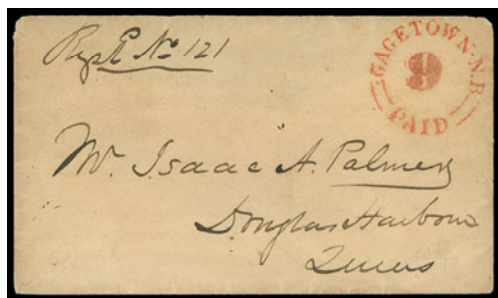 Regd No 121
GAGETOWN. N.B
9
PAID
Mr. Isaac A. Palmer
Douglas Harbour
Queens